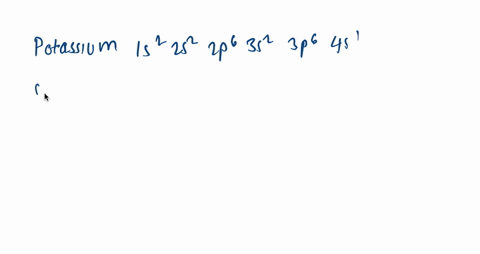 Potassium 1s² 2s² 2p⁶ 3s² 3p⁶ 4s¹